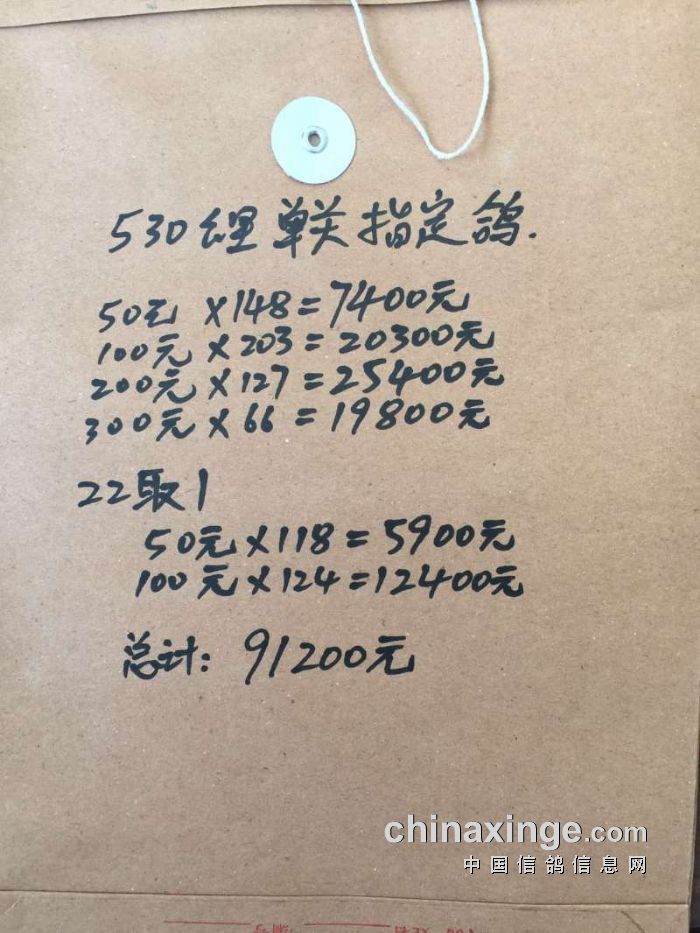 530公里单关指定鸽.
50元×148=7400元
100元×203=20300元
200元×127=25400元
300元×66=19800元
22取1
50元×118=5900元
100元×124=12400元
总计:91200元
chinaxinge.com
中国信鸽信息网